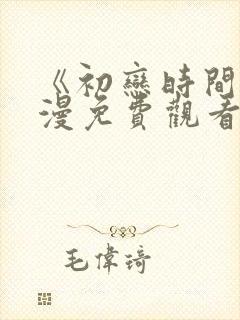 《初戀時間
漫免費觀看
毛偉琦